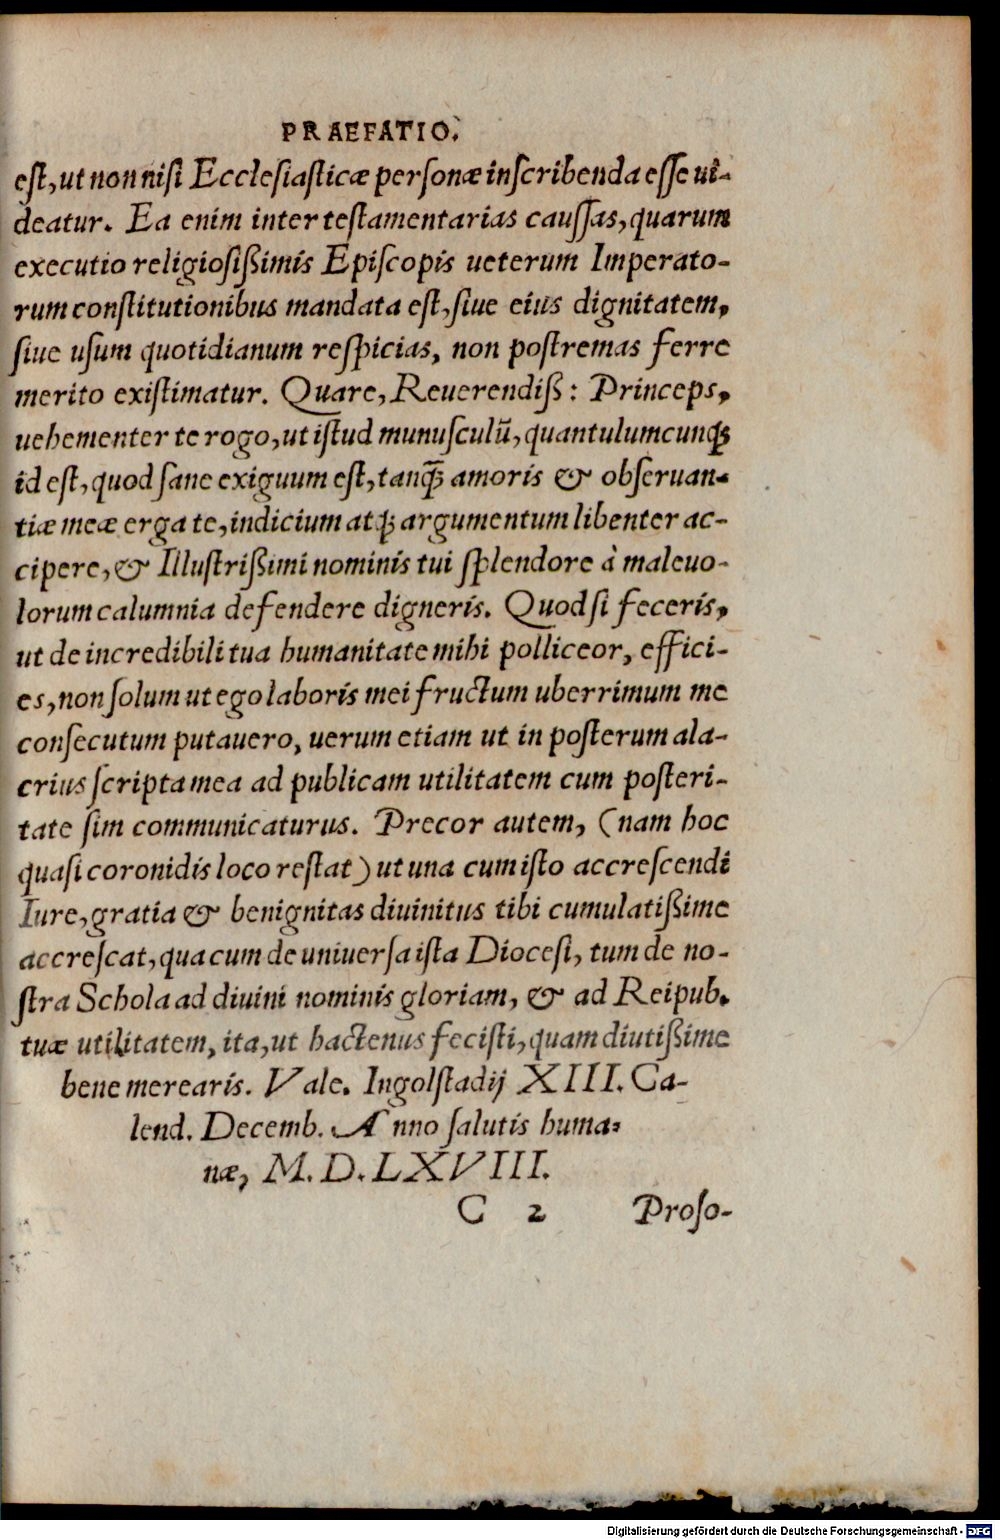 PRAEFATIO.
est, ut non nisi Ecclesiasticæ personæ inscribenda esse ui-
deatur. Ea enim inter testamentarias caussas, quarum
executio religiosißimis Episcopis ueterum Imperato-
rum constitutionibus mandata est, siue eius dignitatem,
siue usum quotidianum respicias, non postremas ferre
merito existimatur. Quare, Reuerendiß: Princeps,
uehementer te rogo, ut istud munusculū, quantulumcunqꝫ
id est, quod sane exiguum est, tanq̄ꝫ amoris & obseruan-
tiæ meæ erga te, indicium atqꝫ argumentum libenter ac-
cipere, & Illustrißimi nominis tui splendore à maleuo-
lorum calumnia defendere digneris. Quod si feceris,
ut de incredibili tua humanitate mihi polliceor, effici-
es, non solum ut ego laboris mei fructum uberrimum me
consecutum putauero, uerum etiam ut in posterum ala-
crius scripta mea ad publicam utilitatem cum posteri-
tate sim communicaturus. Precor autem, (nam hoc
quasi coronidis loco restat) ut una cum isto accrescendi
Iure, gratia & benignitas diuinitus tibi cumulatißime
accrescat, qua cum de uniuersa ista Diocesi, tum de no-
stra Schola ad diuini nominis gloriam, & ad Reipub.
tuæ utilitatem, ita, ut hactenus fecisti, quam diutißime
bene merearis. Vale. Ingolstadij XIII. Ca-
lend. Decemb. Anno salutis huma-
næ, M. D. LXVIII.
C 2 Proso-
Digitalisierung gefördert durch die Deutsche Forschungsgemeinschaft - DFG